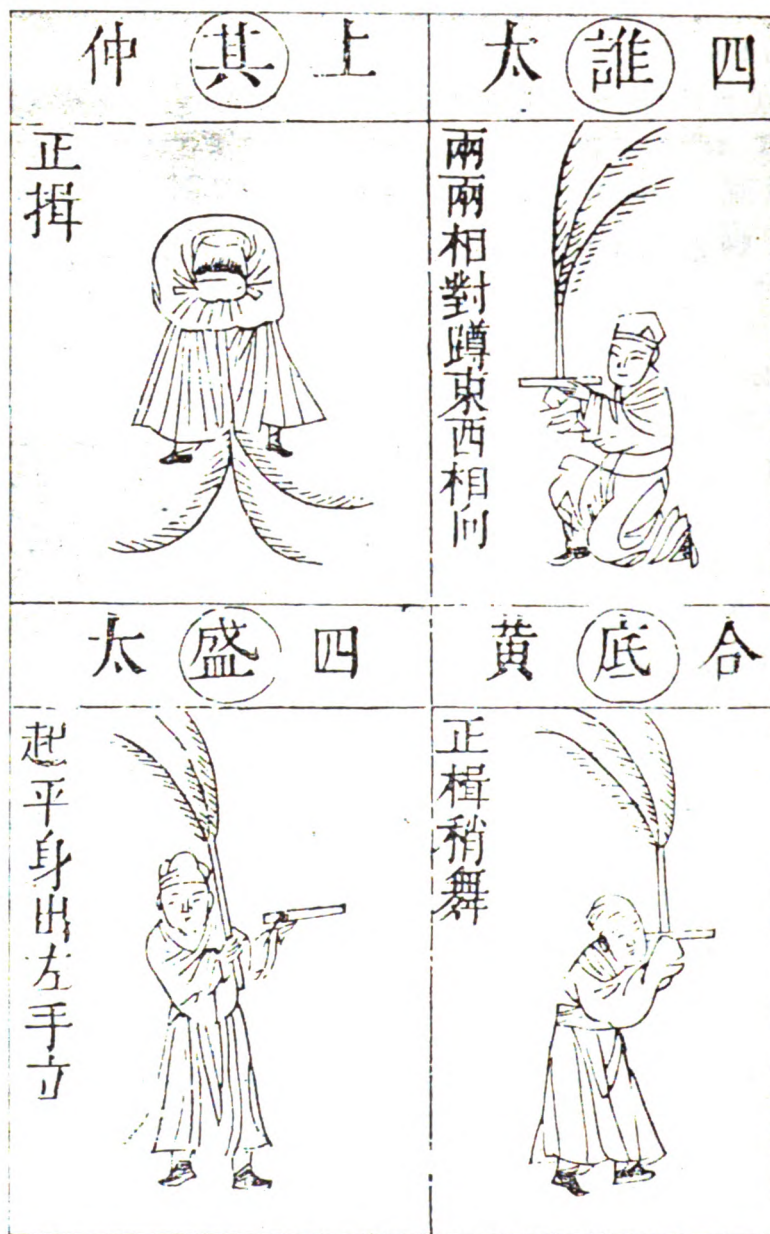 四誰太
兩兩相對蹲東西相向
上其仲
正揖
合底黄
正楫稍舞
四盛太
起平身出左手立